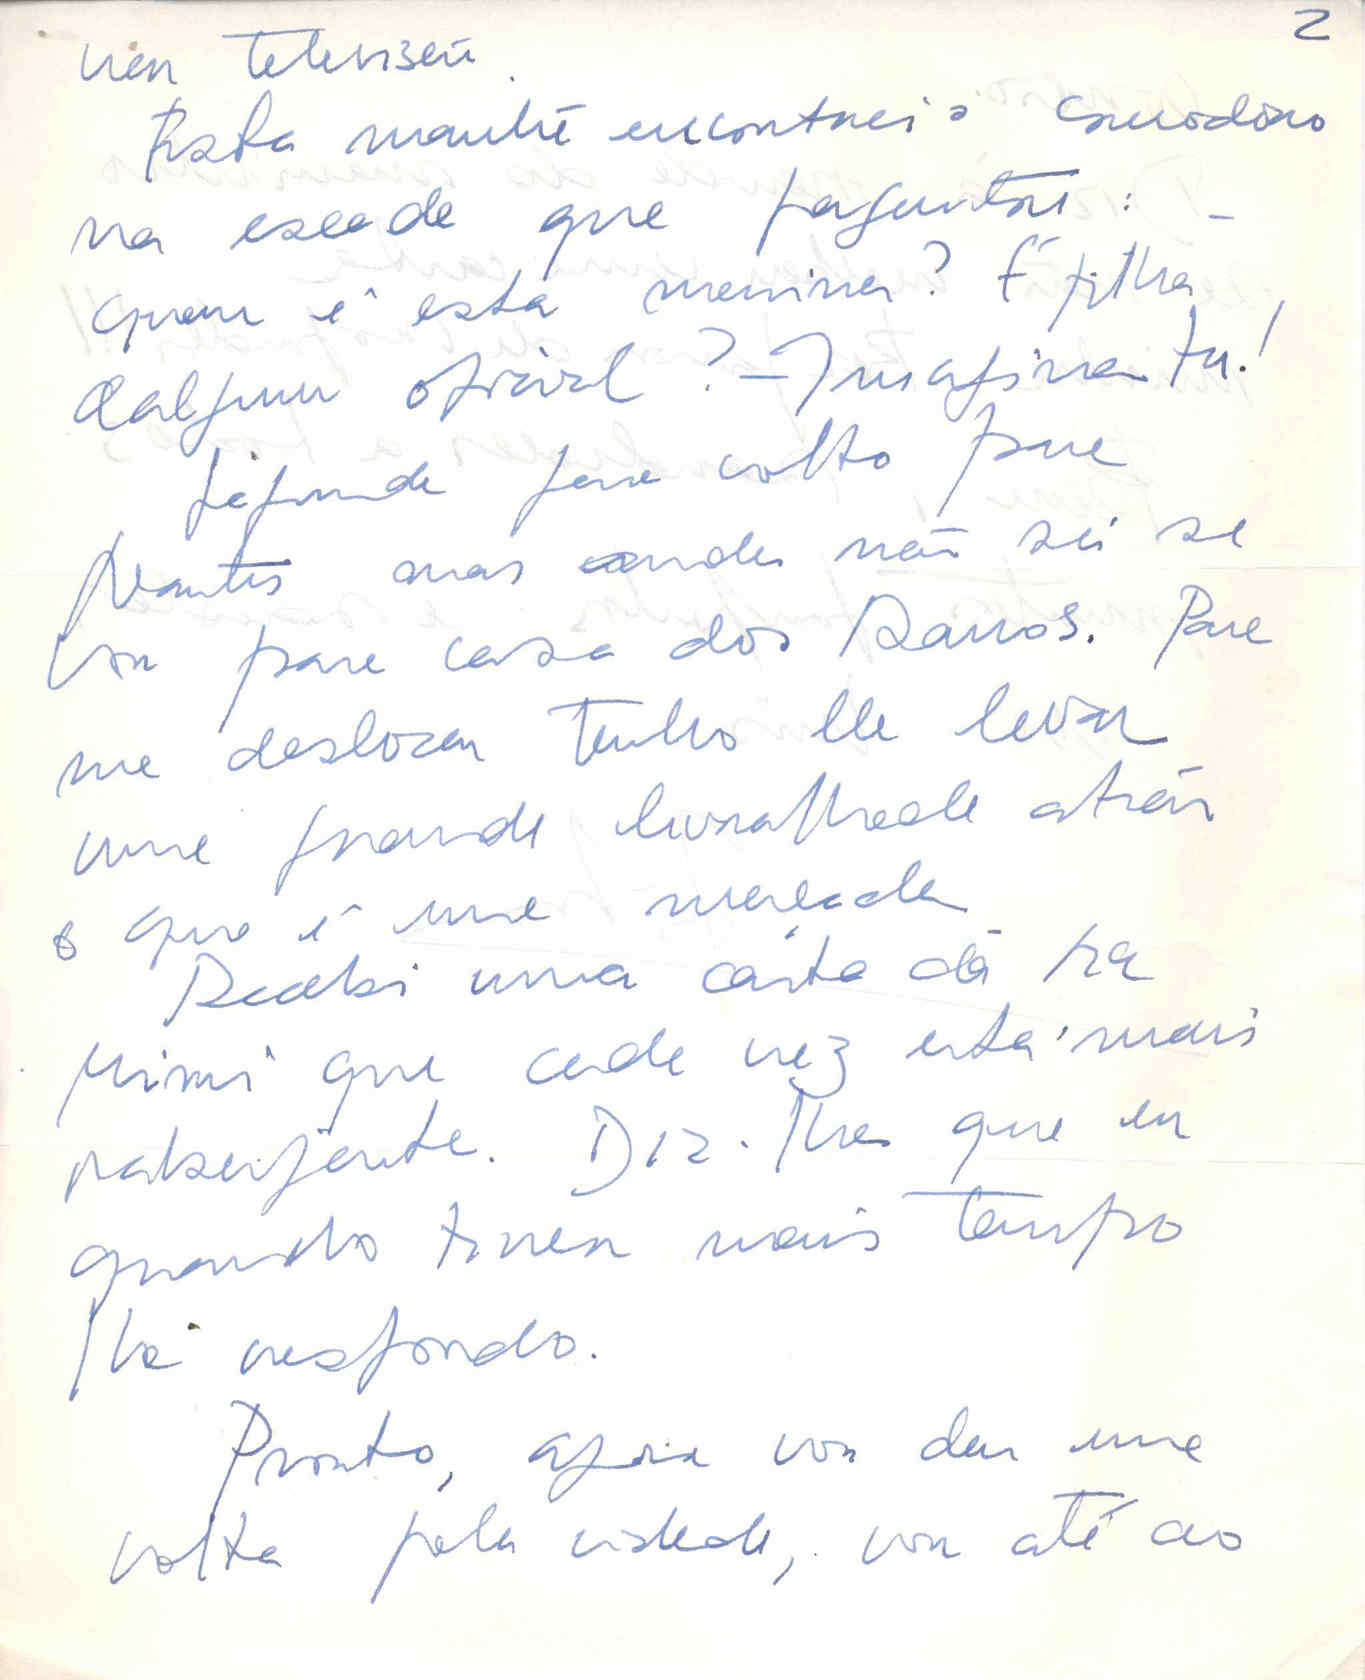 2
ver televisão.
Esta manhã encontrei o comodoro
na escada que perguntou: -
quem é esta menina? É filha
dalgum oficial? - Imagina tu!
Segunda feira volto para
Nantes mas ainda não sei se
vou para casa dos Ramos. Para
me deslocar tenho de levar
uma grande livralhada atrás
o que é uma maçada
Recebi uma carta da tia
Mimi que cada vez está mais
Diz-lhe que eu
quando tiver mais tempo
lhe respondo.
Pronto, agora vou dar uma
volta pela cidade, vou até ao